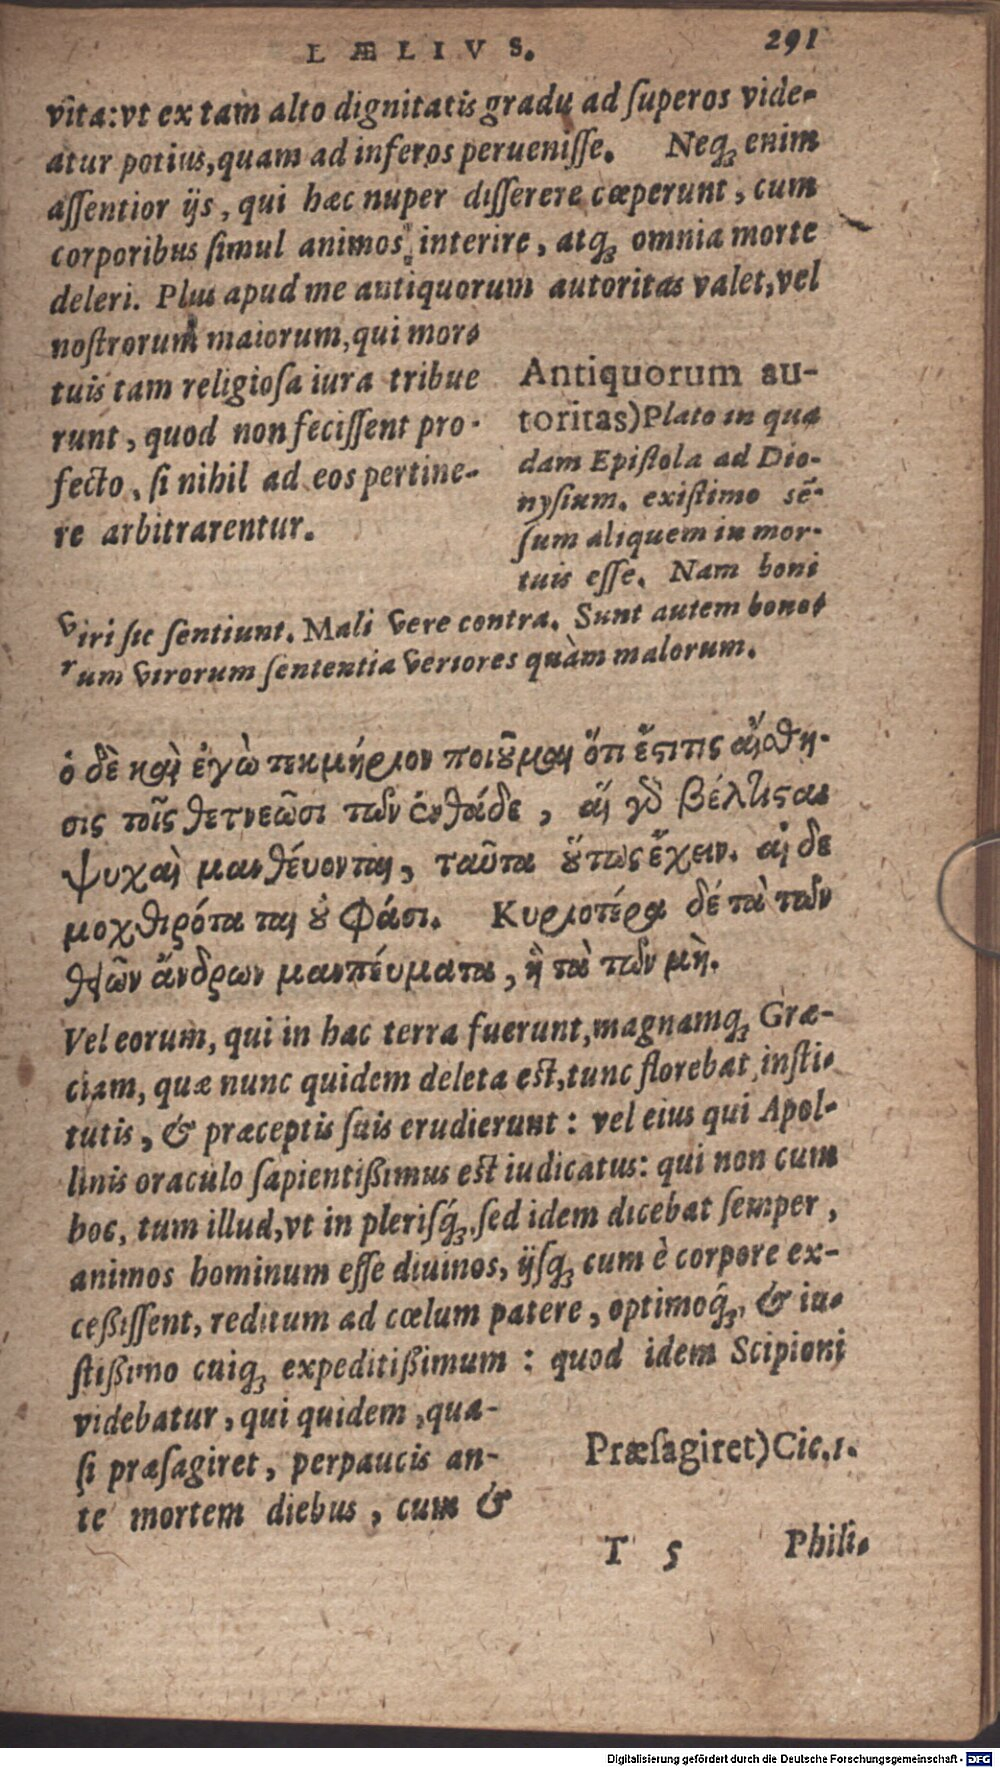 LÆLIVS. 291
vita: vt ex tam alto dignitatis gradu ad ſuperos vide-
atur potius, quam ad inferos perueniſſe. Neqꝫ enim
aſſentior ijs, qui hæc nuper diſſerere cœperunt, cum
corporibus ſimul animos interire, atqꝫ omnia morte
deleri. Plus apud me antiquorum autoritas valet, vel
noſtrorum maiorum, qui mor-
tuis tam religioſa iura tribue
runt, quod non feciſſent pro-
fecto, ſi nihil ad eos pertine-
re arbitrarentur.
Antiquorum au-
toritas) Plato in qua
dam Epiſtola ad Dio-
nyſium. exiſtimo sē-
ſum aliquem in mor-
tuis eſſe. Nam boni
viri ſic ſentiunt. Mali vere contra. Sunt autem bono-
rum virorum ſententia veriores quàm malorum.
ὁ δὲ καὶ ἐγὼ τεκμήριον ποιοῦμαι ὅτι ἔστι τις αἴσθη-
σις τοῖς θετνεῶσι τῶν ἐνθάδε, αἵ γὰρ βέλτισαι
ψυχαὶ μανθέυονται, ταῦτα οὕτως ἔχειν. αἱ δε
μοχθιρότα ται οὐ φάσι. Κυριοτέρα δέ τὰ τῶν
θείων ἄνδρων μαντέυματα, ἢ τὰ τῶν μὴ.
Vel eorum, qui in hac terra fuerunt, magnamqꝫ Græ-
ciam, quæ nunc quidem deleta eſt, tunc florebat, inſti-
tutis, & præceptis ſuis erudierunt: vel eius qui Apol-
linis oraculo ſapientißimus eſt iudicatus: qui non cum
hoc, tum illud, vt in pleriſq́ꝫ, ſed idem dicebat ſemper,
animos hominum eſſe diuinos, ijſqꝫ cum è corpore ex-
ceßiſſent, reditum ad cœlum patere, optimoq́ꝫ, & iu-
ſtißimo cuiqꝫ expeditißimum: quod idem Scipioni
videbatur, qui quidem, qua-
ſi præſagiret, perpaucis an-
te mortem diebus, cum &
Præſagiret) Cic. 1.
T 5 Phili-
Digitalisierung gefördert durch die Deutsche Forschungsgemeinschaft - DFG